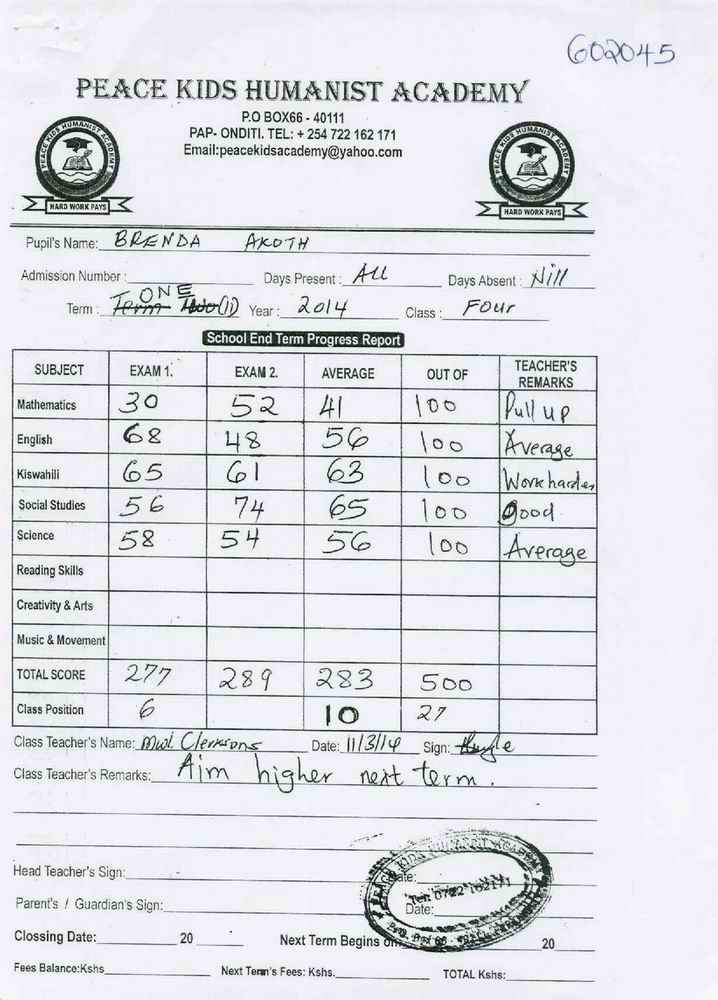 602045
PEACE KIDS HUMANIST ACADEMY
P.O BOX66 - 40111
PAP- ONDITI. TEL: + 254 722 162 171
Email:peacekidsacademy@yahoo.com
PEACE KIDS HUMANIST ACADEMY
HARD WORK PAYS
PEACE KIDS HUMANIST ACADEMY
HARD WORK PAYS
Pupil's Name: BRENDA AKOTH
Admission Number : Days Present : All Days Absent : Nill
ONE
Term : Term Two (II) Year : 2014 Class : Four
School End Term Progress Report
SUBJECT EXAM 1. EXAM 2. AVERAGE OUT OF TEACHER'S REMARKS
Mathematics 30 52 41 100 Pull up
English 68 48 56 100 Average
Kiswahili 65 61 63 100 Work harder
Social Studies 56 74 65 100 Good
Science 58 54 56 100 Average
Reading Skills
Creativity & Arts
Music & Movement
TOTAL SCORE 277 289 283 500
Class Position 6 10 27
Class Teacher's Name: Date: 11/3/14 Sign:
Class Teacher's Remarks: Aim higher next term.
Head Teacher's Sign: Date:
Parent's / Guardian's Sign: Date:
Clossing Date: 20 Next Term Begins on 20
Fees Balance:Kshs. Next Term's Fees: Kshs. TOTAL Kshs:
PEACE KIDS HUMANIST ACADEMY
Tel: 0722 162171